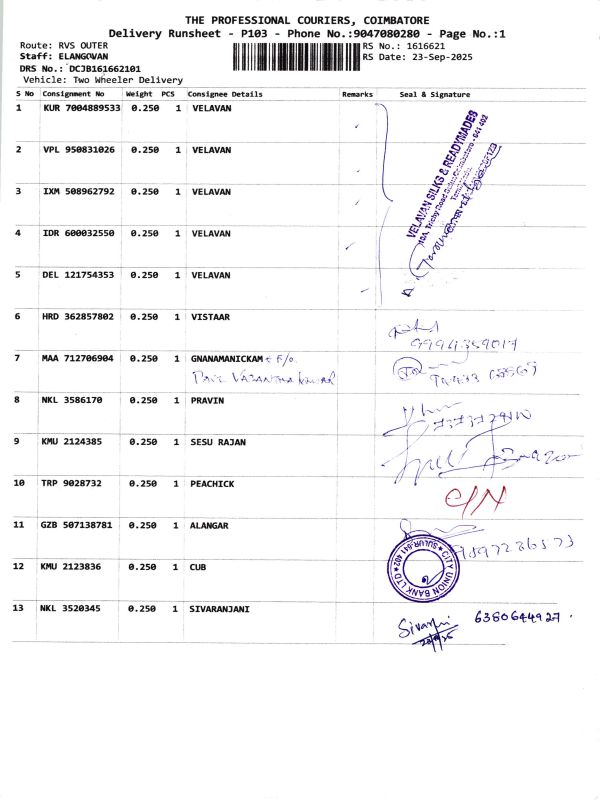 THE PROFESSIONAL COURIERS, COIMBATORE
Delivery Runsheet - P103 - Phone No.:9047080280 - Page No.:1
Route: RVS OUTER
RS No.: 1616621
Staff: ELANGOVAN
RS Date: 23-Sep-2025
DRS No.: DCJB161662101
Vehicle: Two Wheeler Delivery
S No Consignment No Weight PCS Consignee Details Remarks Seal & Signature
1 KUR 7004889533 0.250 1 VELAVAN
2 VPL 950831026 0.250 1 VELAVAN
3 IXM 508962792 0.250 1 VELAVAN
4 IDR 600032550 0.250 1 VELAVAN
5 DEL 121754353 0.250 1 VELAVAN
VELAVAN SILKS & READYMADES
6 HRD 362857802 0.250 1 VISTAAR
9994359017
7 MAA 712706904 0.250 1 GNANAMANICKAM F/o.
8 NKL 3586170 0.250 1 PRAVIN
9 KMU 2124385 0.250 1 SESU RAJAN
10 TRP 9028732 0.250 1 PEACHICK
11 GZB 507138781 0.250 1 ALANGAR
12 KMU 2123836 0.250 1 CUB
CITY UNION BANK LTD
SULUR-641 402
13 NKL 3520345 0.250 1 SIVARANJANI
6380644927.